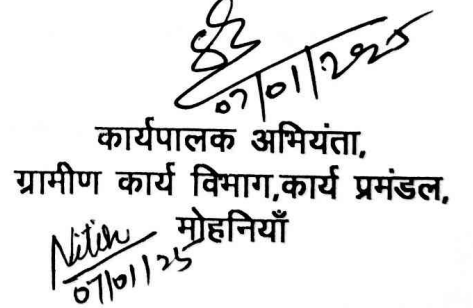 07/01/2025
कार्यपालक अभियंता,
ग्रामीण कार्य विभाग,कार्य प्रमंडल,
मोहनियाँ
Nitish
07/01/25